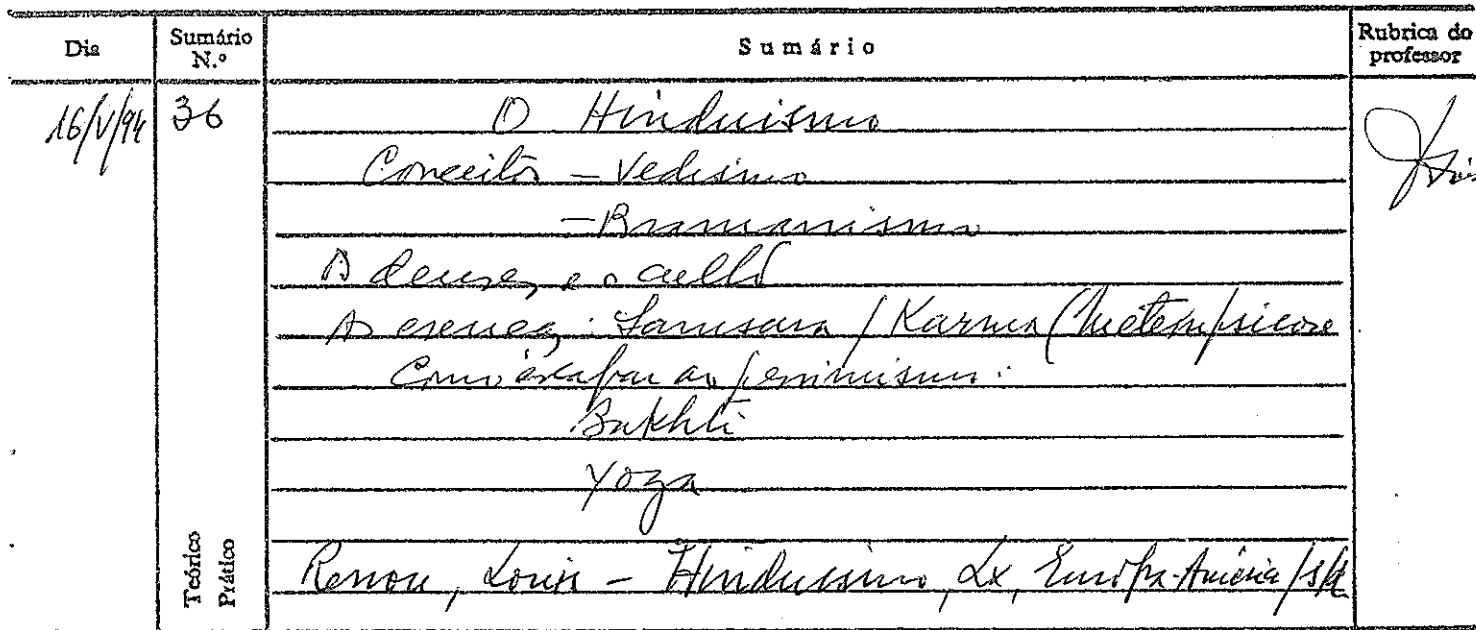 Dia
Sumário N.º
Sumário
Rubrica do professor
16/V/94
36
O Hinduismo
Conceitos - Vedismo
- Bramanismo
Os deuses e o culto
As crenças: Samsara / Karma / Metempsicose
Como escapar ao pessimismo:
Bakhti
Yoga
Teórico
Prático
Renou, Louis - Hinduismo, Lx, Europa-América, s/d